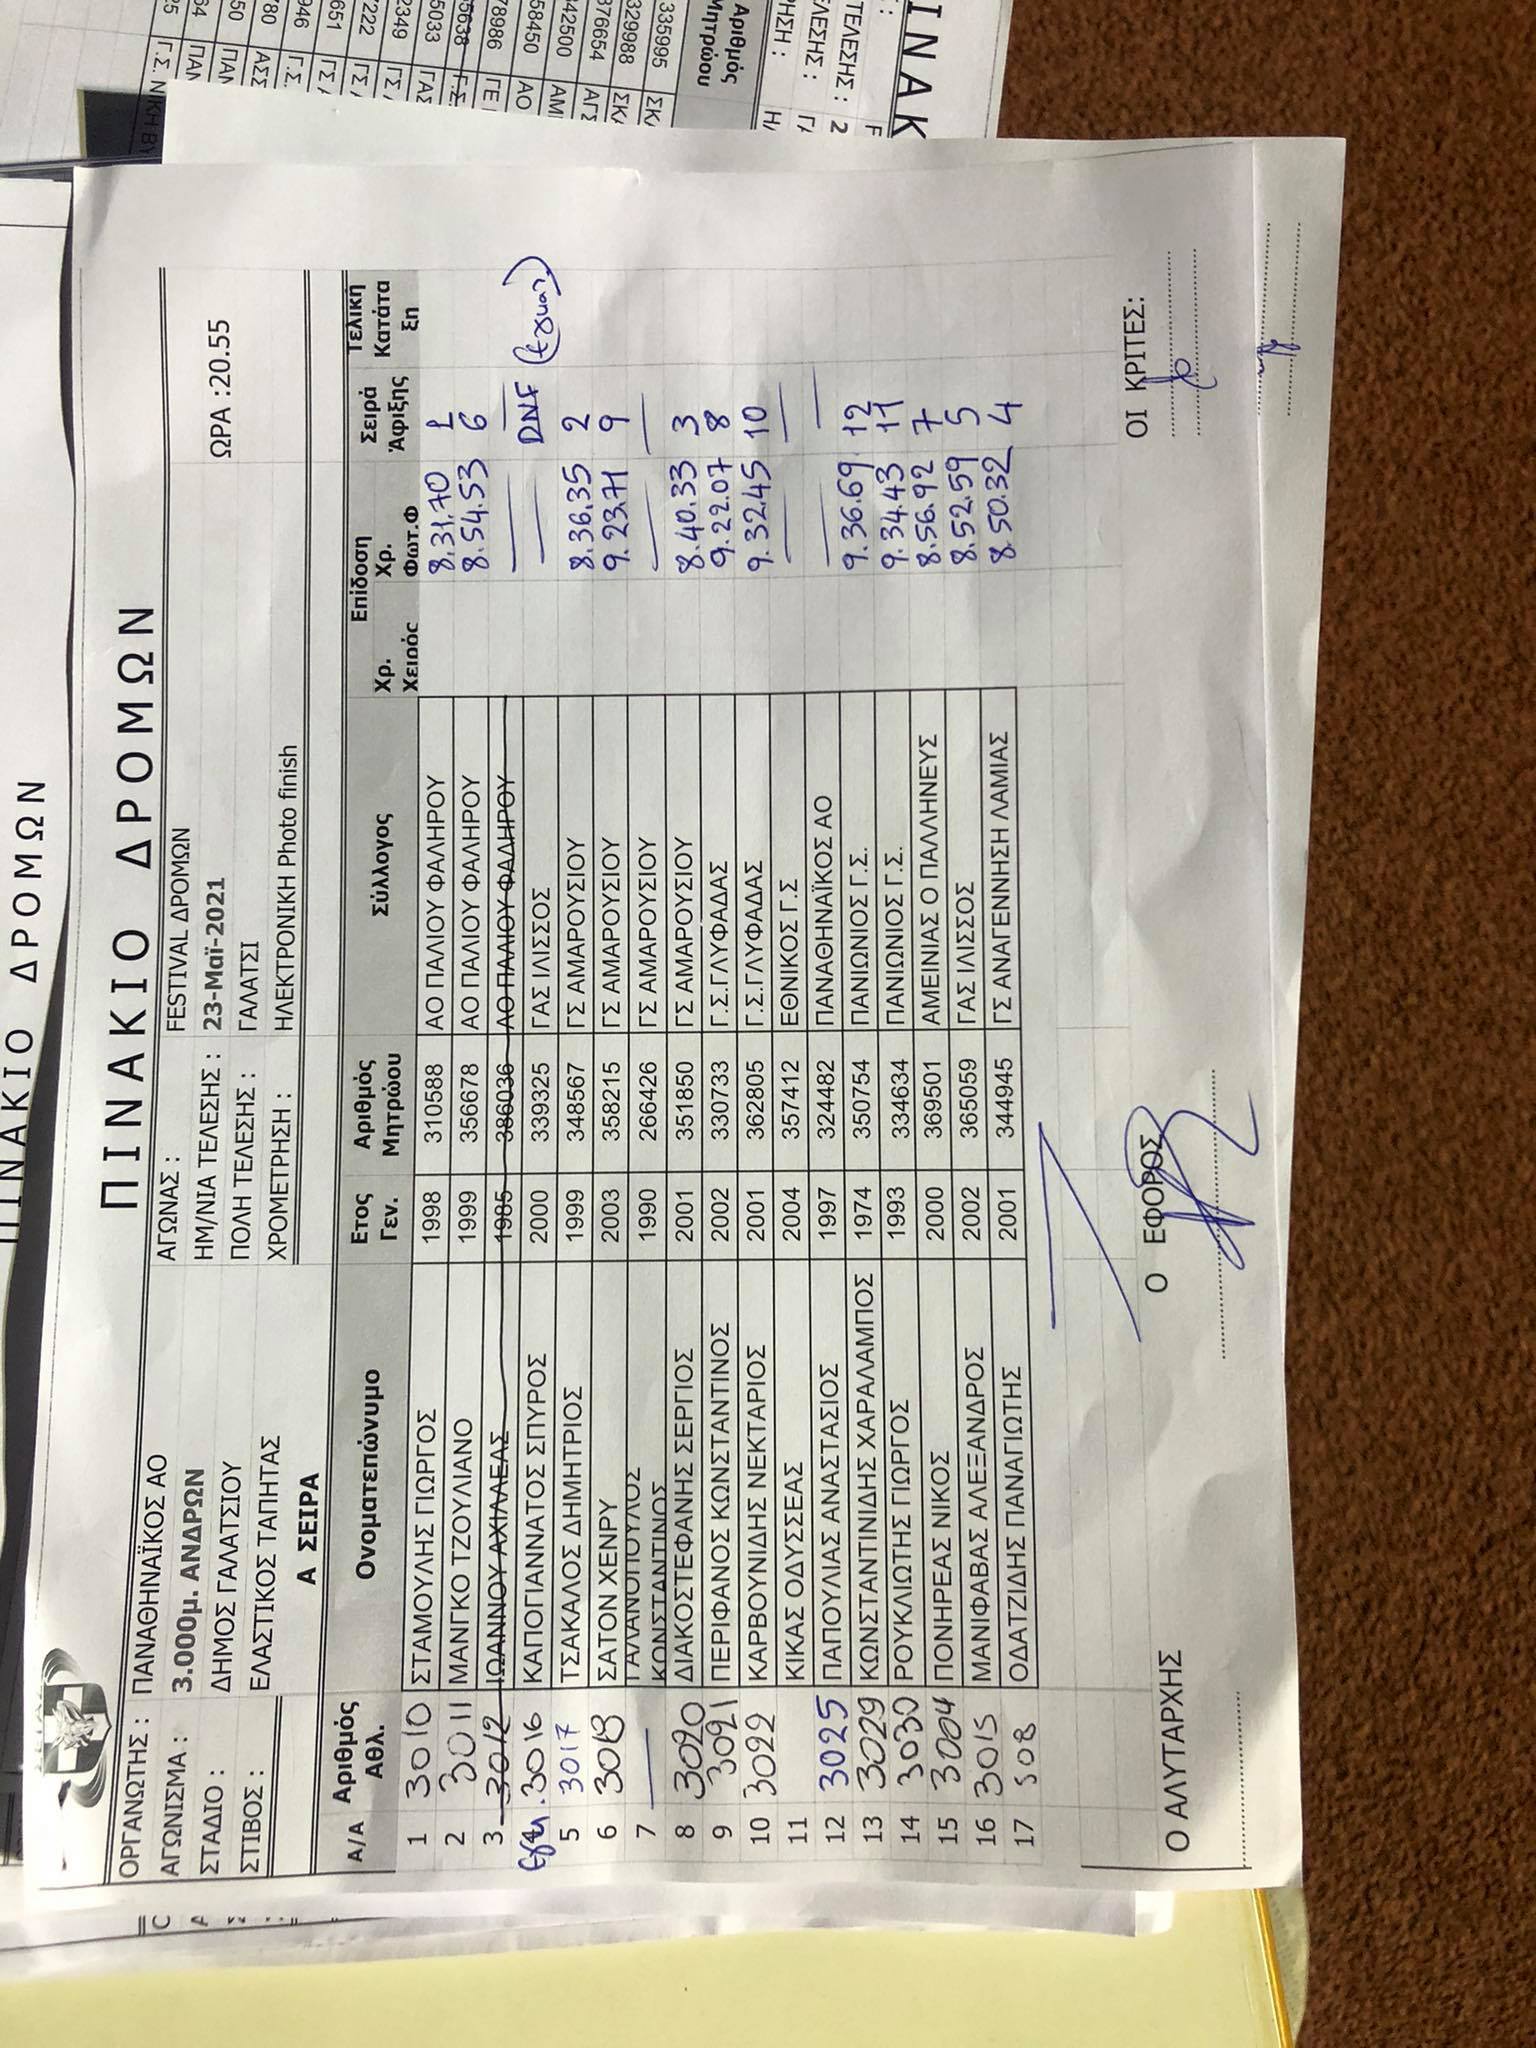 ΠΙΝΑΚΙΟ ΔΡΟΜΩΝ
ΠΙΝΑΚΙΟ ΔΡΟΜΩΝ
ΟΡΓΑΝΩΤΗΣ : ΠΑΝΑΘΗΝΑΪΚΟΣ ΑΟ ΑΓΩΝΑΣ : FESTIVAL ΔΡΟΜΩΝ
ΑΓΩΝΙΣΜΑ : 3.000μ. ΑΝΔΡΩΝ ΗΜ/ΝΙΑ ΤΕΛΕΣΗΣ : 23-Μαϊ-2021
ΣΤΑΔΙΟ : ΔΗΜΟΣ ΓΑΛΑΤΣΙΟΥ ΠΟΛΗ ΤΕΛΕΣΗΣ : ΓΑΛΑΤΣΙ ΩΡΑ :20.55
ΣΤΙΒΟΣ : ΕΛΑΣΤΙΚΟΣ ΤΑΠΗΤΑΣ ΧΡΟΜΕΤΡΗΣΗ : ΗΛΕΚΤΡΟΝΙΚΗ Photo finish
Α ΣΕΙΡΑ
Α/Α Αριθμός Αθλ. Ονοματεπώνυμο Ετος Γεν. Αριθμός Μητρώου Σύλλογος Επίδοση Χρ. Χειρός Χρ. Φωτ.Φ Σειρά Άφιξης Τελική Κατάτα ξη
1 3010 ΣΤΑΜΟΥΛΗΣ ΓΙΩΡΓΟΣ 1998 310588 ΑΟ ΠΑΛΙΟΥ ΦΑΛΗΡΟΥ 8.31.70 1
2 3011 ΜΑΝΓΚΟ ΤΖΟΥΛΙΑΝΟ 1999 356678 ΑΟ ΠΑΛΙΟΥ ΦΑΛΗΡΟΥ 8.54.53 6
3 3012 ΙΩΑΝΝΟΥ ΑΧΙΛΛΕΑΣ 1985 386036 ΑΟ ΠΑΛΙΟΥ ΦΑΛΗΡΟΥ
3016 ΚΑΠΟΓΙΑΝΝΑΤΟΣ ΣΠΥΡΟΣ 2000 339325 ΓΑΣ ΙΛΙΣΣΟΣ DNF
5 3017 ΤΣΑΚΑΛΟΣ ΔΗΜΗΤΡΙΟΣ 1999 348567 ΓΣ ΑΜΑΡΟΥΣΙΟΥ 8.36.35 2
6 ΣΑΤΟΝ ΧΕΝΡΥ 2003 358215 ΓΣ ΑΜΑΡΟΥΣΙΟΥ 9.23.71 9
7 ΓΑΛΑΝΟΠΟΥΛΟΣ ΚΩΝΣΤΑΝΤΙΝΟΣ 1990 266426 ΓΣ ΑΜΑΡΟΥΣΙΟΥ
8 3020 ΔΙΑΚΟΣΤΕΦΑΝΗΣ ΣΕΡΓΙΟΣ 2001 351850 ΓΣ ΑΜΑΡΟΥΣΙΟΥ 8.40.33 3
9 3021 ΠΕΡΙΦΑΝΟΣ ΚΩΝΣΤΑΝΤΙΝΟΣ 2002 330733 Γ.Σ.ΓΛΥΦΑΔΑΣ 9.22.07 8
10 3022 ΚΑΡΒΟΥΝΙΔΗΣ ΝΕΚΤΑΡΙΟΣ 2001 362805 Γ.Σ.ΓΛΥΦΑΔΑΣ 9.32.45 10
11 ΚΙΚΑΣ ΟΔΥΣΣΕΑΣ 2004 357412 ΕΘΝΙΚΟΣ Γ.Σ
12 3025 ΠΑΠΟΥΛΙΑΣ ΑΝΑΣΤΑΣΙΟΣ 1997 324482 ΠΑΝΑΘΗΝΑΪΚΟΣ ΑΟ
13 3029 ΚΩΝΣΤΑΝΤΙΝΙΔΗΣ ΧΑΡΑΛΑΜΠΟΣ 1974 350754 ΠΑΝΙΩΝΙΟΣ Γ.Σ. 9.36.69 12
14 3030 ΡΟΥΚΛΙΩΤΗΣ ΓΙΩΡΓΟΣ 1993 334634 ΠΑΝΙΩΝΙΟΣ Γ.Σ. 9.34.43 11
15 3004 ΠΟΝΗΡΕΑΣ ΝΙΚΟΣ 2000 369501 ΑΜΕΙΝΙΑΣ Ο ΠΑΛΛΗΝΕΥΣ 8.56.92 7
16 3015 ΜΑΝΙΦΑΒΑΣ ΑΛΕΞΑΝΔΡΟΣ 2002 365059 ΓΑΣ ΙΛΙΣΣΟΣ 8.52.59 5
17 508 ΟΔΑΤΖΙΔΗΣ ΠΑΝΑΓΙΩΤΗΣ 2001 344945 ΓΣ ΑΝΑΓΕΝΝΗΣΗ ΛΑΜΙΑΣ 8.50.32 4
Ο ΑΛΥΤΑΡΧΗΣ Ο ΕΦΟΡΟΣ ΟΙ ΚΡΙΤΕΣ:
ΙΝΑΚ
ΤΕΛΕΣΗΣ : 2
ΕΛΕΣΗΣ :
ΡΗΣΗ :
Αριθμός Μητρώου
335995 ΣΚ
329988 ΣΚ
376654 ΑΓΣ
342500 ΑΜ
58450 ΑΟ
78986 ΓΕ
5638 Γ.Σ.
5033 ΓΑΣ
2349 ΓΣ
7222 ΓΣ
651 ΓΣ
946 Γ.Σ.
780 ΑΣΣ
50 ΠΑΝ
64 ΠΑΝ
25 Γ.Σ. ΝΙΚΗ ΒΥ